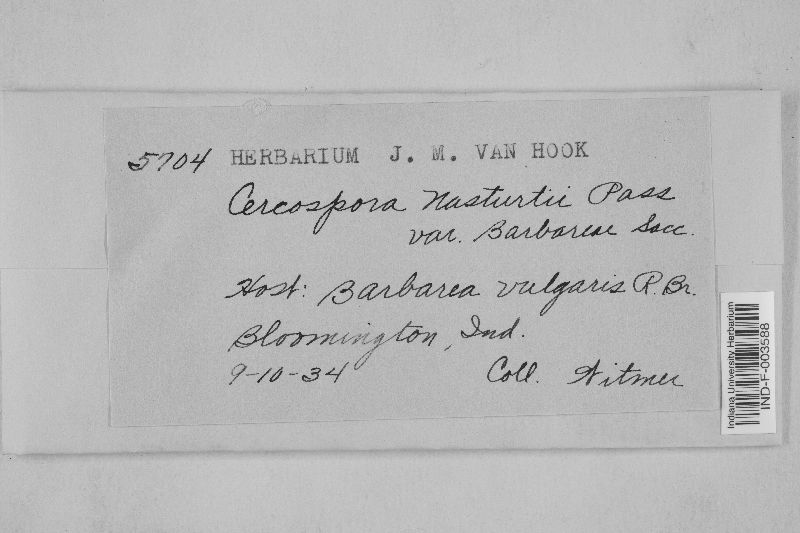 5704 HERBARIUM J. M. VAN HOOK
Cercospora Nasturtii Pass
var. Barbareae Sacc.
Host: Barbarea vulgaris R. Br.
Bloomington, Ind.
9-10-34 Coll. Witmer
Indiana University Herbarium
IND-F-003588